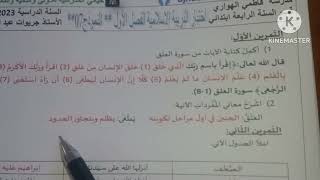 مدرسة فاطمي الهواري
السنة الرابعة ابتدائي
اختبار التربية الإسلامية الفصل الأول ** النموذج 07 **
السنة الدراسية 2023
الأستاذ جريوات عبد
MADE WITH
KINEMASTER
التمرين الأول:
1) أكمل كتابة الآيات من سورة العلق
قال الله تعالى:﴿إقرأ باسم ربك الذي خلق (1) خلق الإنسان من علق (2) إقرأ وربك الأكرم (3) الذي علم
بالقلم (4) علم الإنسان ما لم يعلم (5) كلا إن الإنسان ليطغى (6) أن رآه استغنى (7) إن إلى ربك
الرجعى﴾ سورة العلق (1-8)
2) اشرح معاني المفردات الآتية:
العلق: الجنين في أول مراحل تكوينه يطغى: يظلم ويتجاوز الحدود
التمرين الثاني:
املأ الجدول الآتي
الصحف
أنزلها الله على سيدنا
إبراهيم عليه